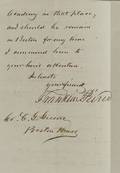 Academy in that place,
and should he remain
in Boston for any time
I commend him to
your kind attention
In haste
your friend
Franklin Pierce
Col. C. G. Greene
Boston Mass